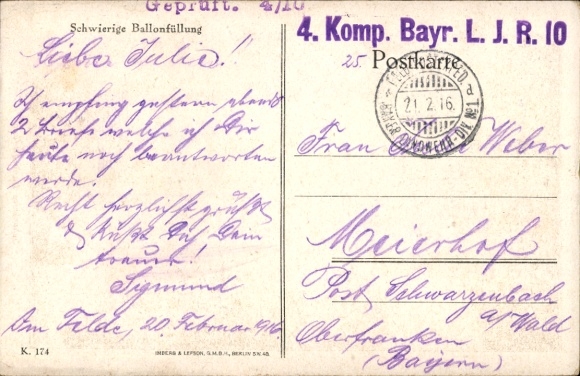 Geprüft. 4/10
Schwierige Ballonfüllung
Liebe Julie!
Ich empfing gestern abend
2 Briefe welche ich Dir
heute noch beantworten
werde.
Recht herzlichst grüßt
& küßt Dich Dein
treuer!
Sigmund
Im Felde, 20. Februar 1916.
K. 174
IMBERG & LEFSON, G.M.B.H., BERLIN SW. 48.
4. Komp. Bayr. L. J. R. 10
25
Postkarte
21.2.16.
BAYER. LANDWEHR-DIV. No 1
Frau Weber
Meierhof
Post Schwarzenbach
a/Wald
Oberfranken
(Bayern)